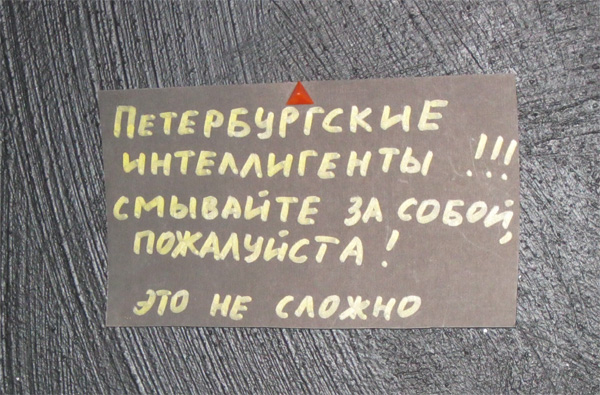 ПЕТЕРБУРГСКИЕ
ИНТЕЛЛИГЕНТЫ !!!
СМЫВАЙТЕ ЗА СОБОЙ,
ПОЖАЛУЙСТА!
ЭТО НЕ СЛОЖНО